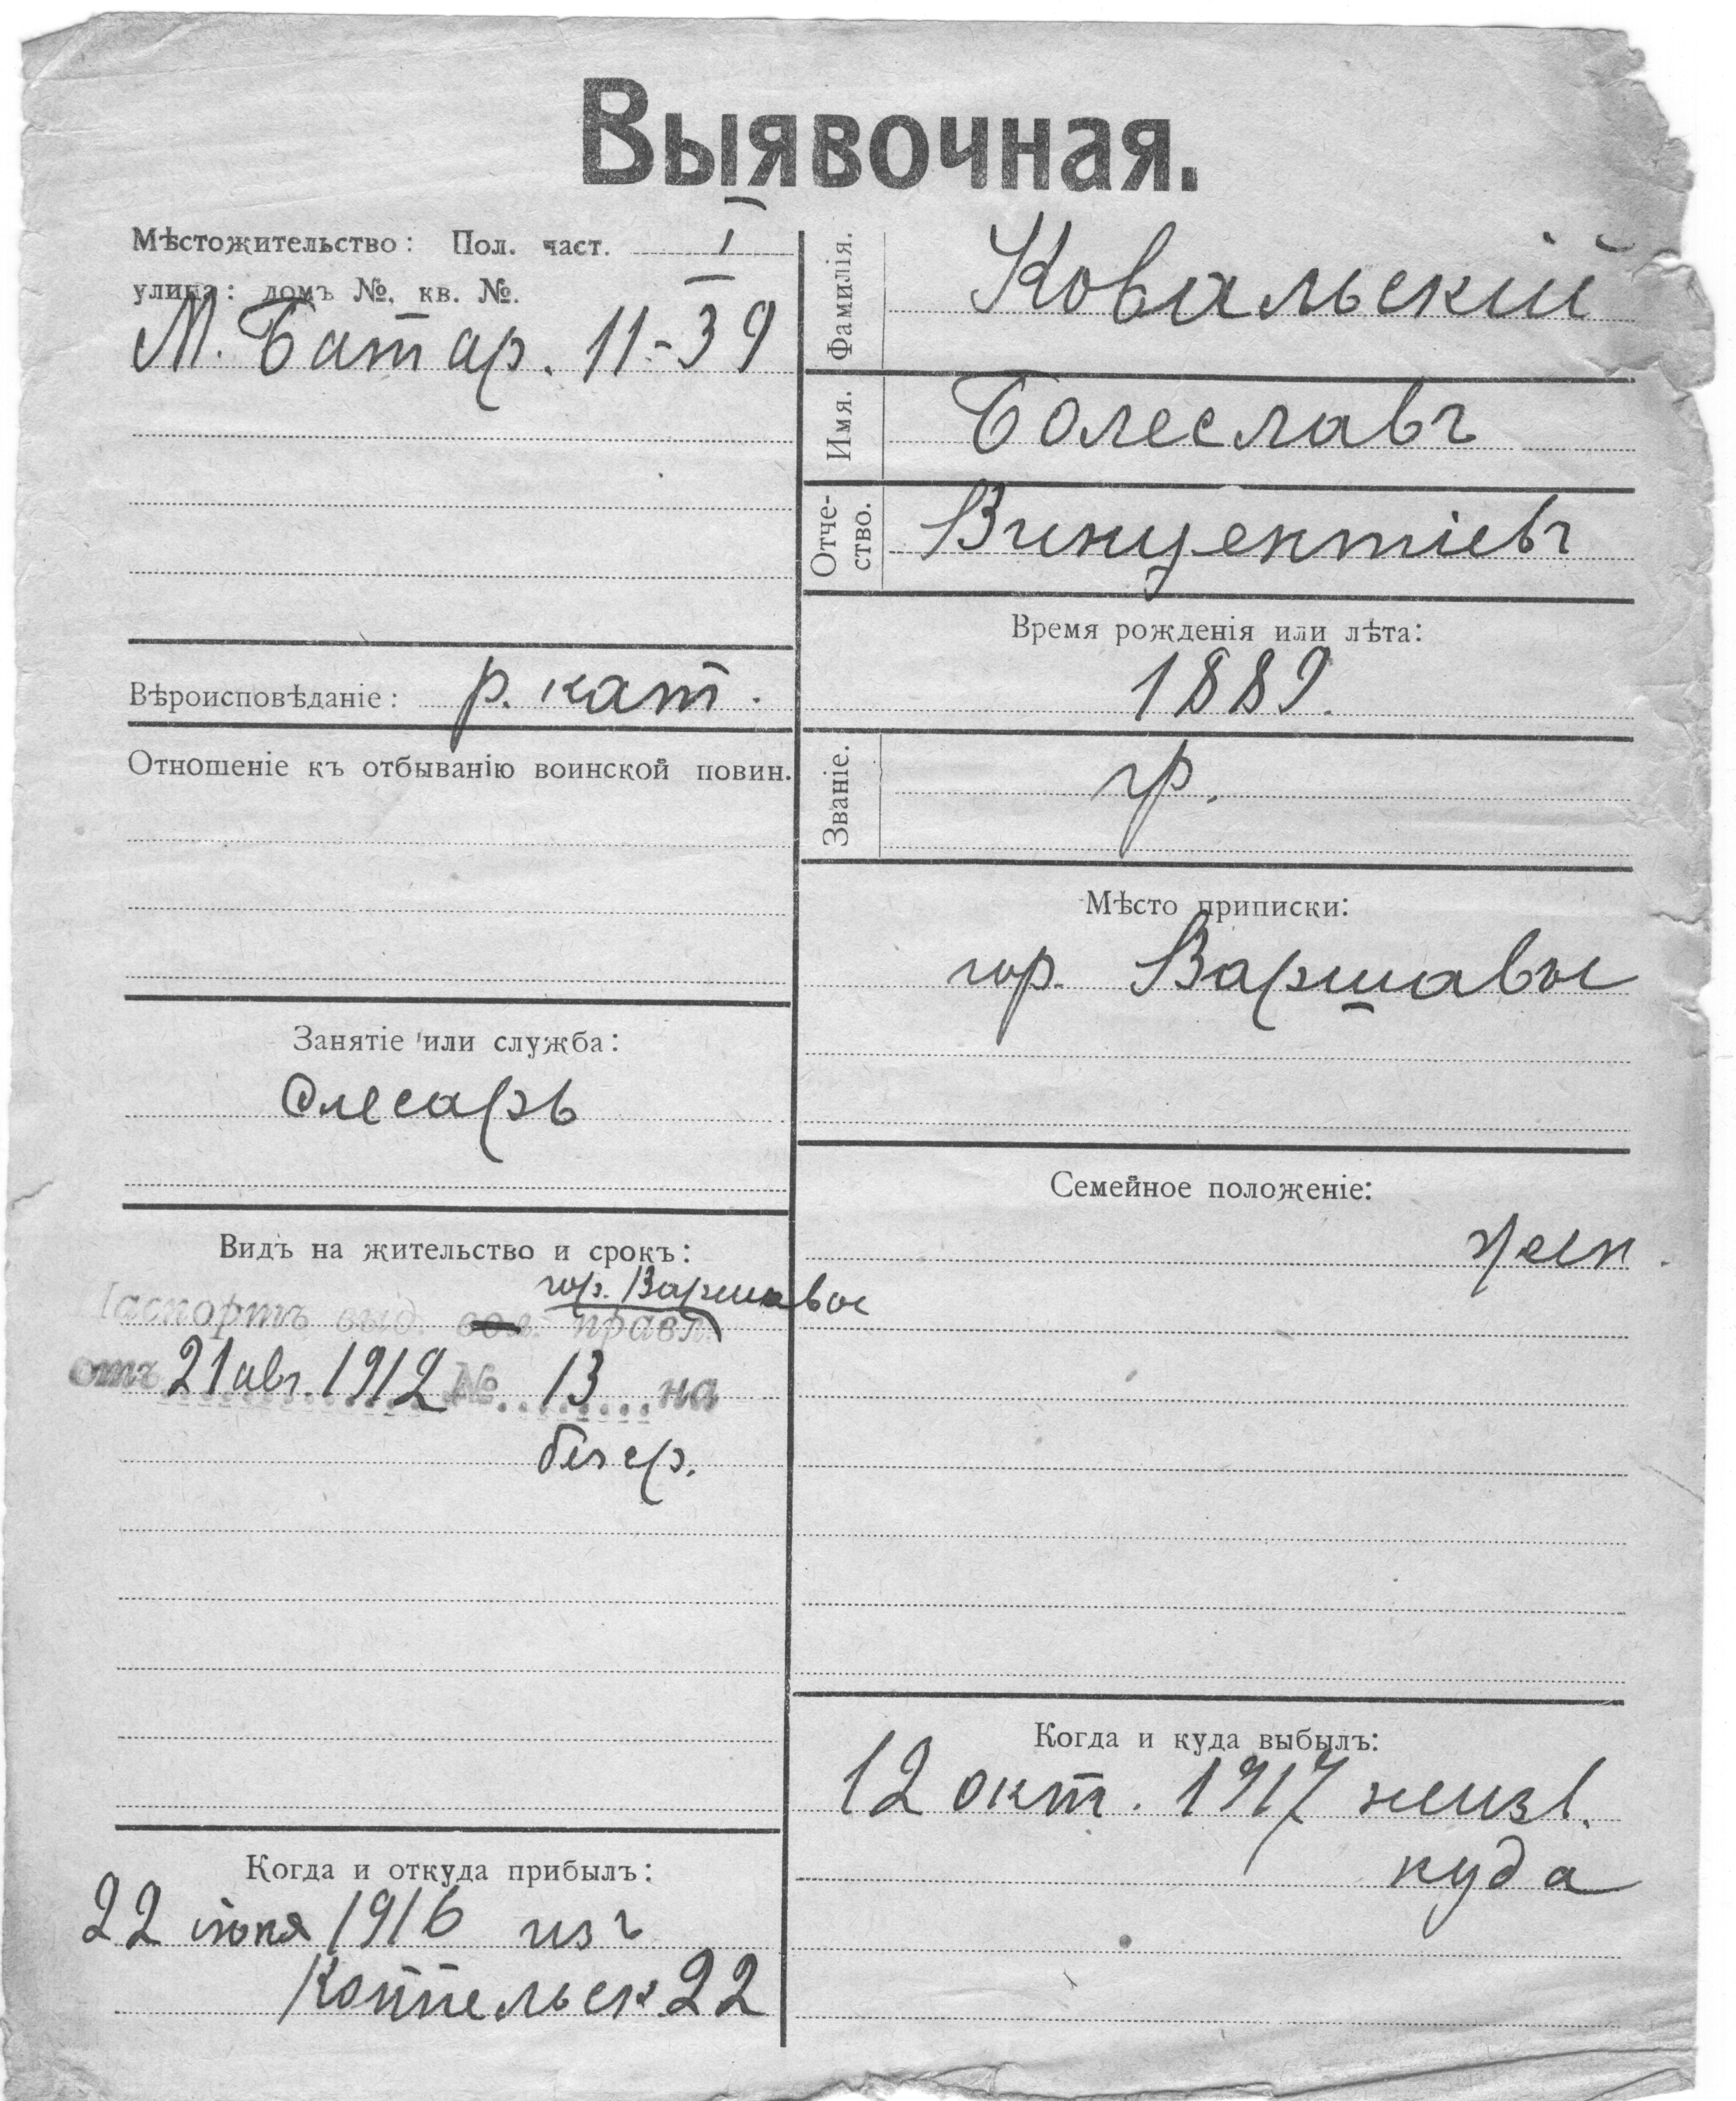 Выявочная.
Мѣстожительство: Пол. част. I
улица: домъ №, кв. №.
М. Батар. 11-39
Вѣроисповѣданіе: р. кат.
Отношеніе къ отбыванію воинской повин.
Занятіе или служба:
Слесарь
Видъ на жительство и срокъ:
гор. Варшавы
Паспортъ выд. вол. правл.
отъ 21 авг. 1912 № 13 на
безср.
Когда и откуда прибылъ:
22 іюня 1916 изъ
Коппельск 22
Фамилія. Ковальскій
Имя. Болеславъ
Отче-
ство. Винцентіевъ
Время рожденія или лѣта:
1889.
Званіе. гр.
Мѣсто приписки:
гор. Варшавы
Семейное положеніе:
Когда и куда выбылъ:
12 окт. 1917 неизв.
куда